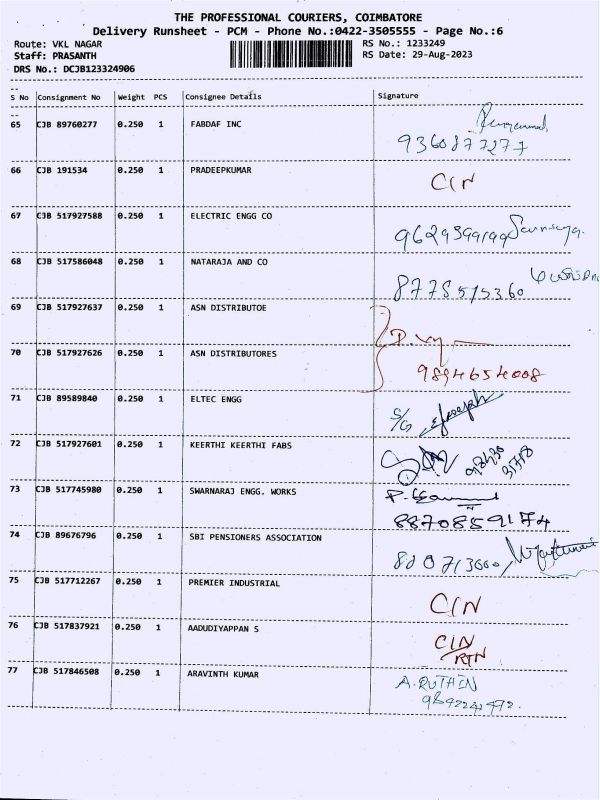 THE PROFESSIONAL COURIERS, COIMBATORE
Delivery Runsheet - PCM - Phone No.:0422-3505555 - Page No.:6
Route: VKL NAGAR RS No.: 1233249
Staff: PRASANTH RS Date: 29-Aug-2023
DRS No.: DCJB123324906
--
S No Consignment No Weight PCS Consignee Details Signature
--
65 CJB 89760277 0.250 1 FABDAF INC
9360877277
66 CJB 191534 0.250 1 PRADEEPKUMAR C/N
67 CJB 517927588 0.250 1 ELECTRIC ENGG CO
68 CJB 517586048 0.250 1 NATARAJA AND CO
8778515360
69 CJB 517927637 0.250 1 ASN DISTRIBUTOE
70 CJB 517927626 0.250 1 ASN DISTRIBUTORES
9894654008
71 CJB 89589840 0.250 1 ELTEC ENGG S/G Joseph
72 CJB 517927601 0.250 1 KEERTHI KEERTHI FABS
73 CJB 517745980 0.250 1 SWARNARAJ ENGG. WORKS
8870859174
74 CJB 89676796 0.250 1 SBI PENSIONERS ASSOCIATION
75 CJB 517712267 0.250 1 PREMIER INDUSTRIAL C/N
76 CJB 517837921 0.250 1 AADUDIYAPPAN S C/N
RTN
77 CJB 517846508 0.250 1 ARAVINTH KUMAR A.RUTHIN